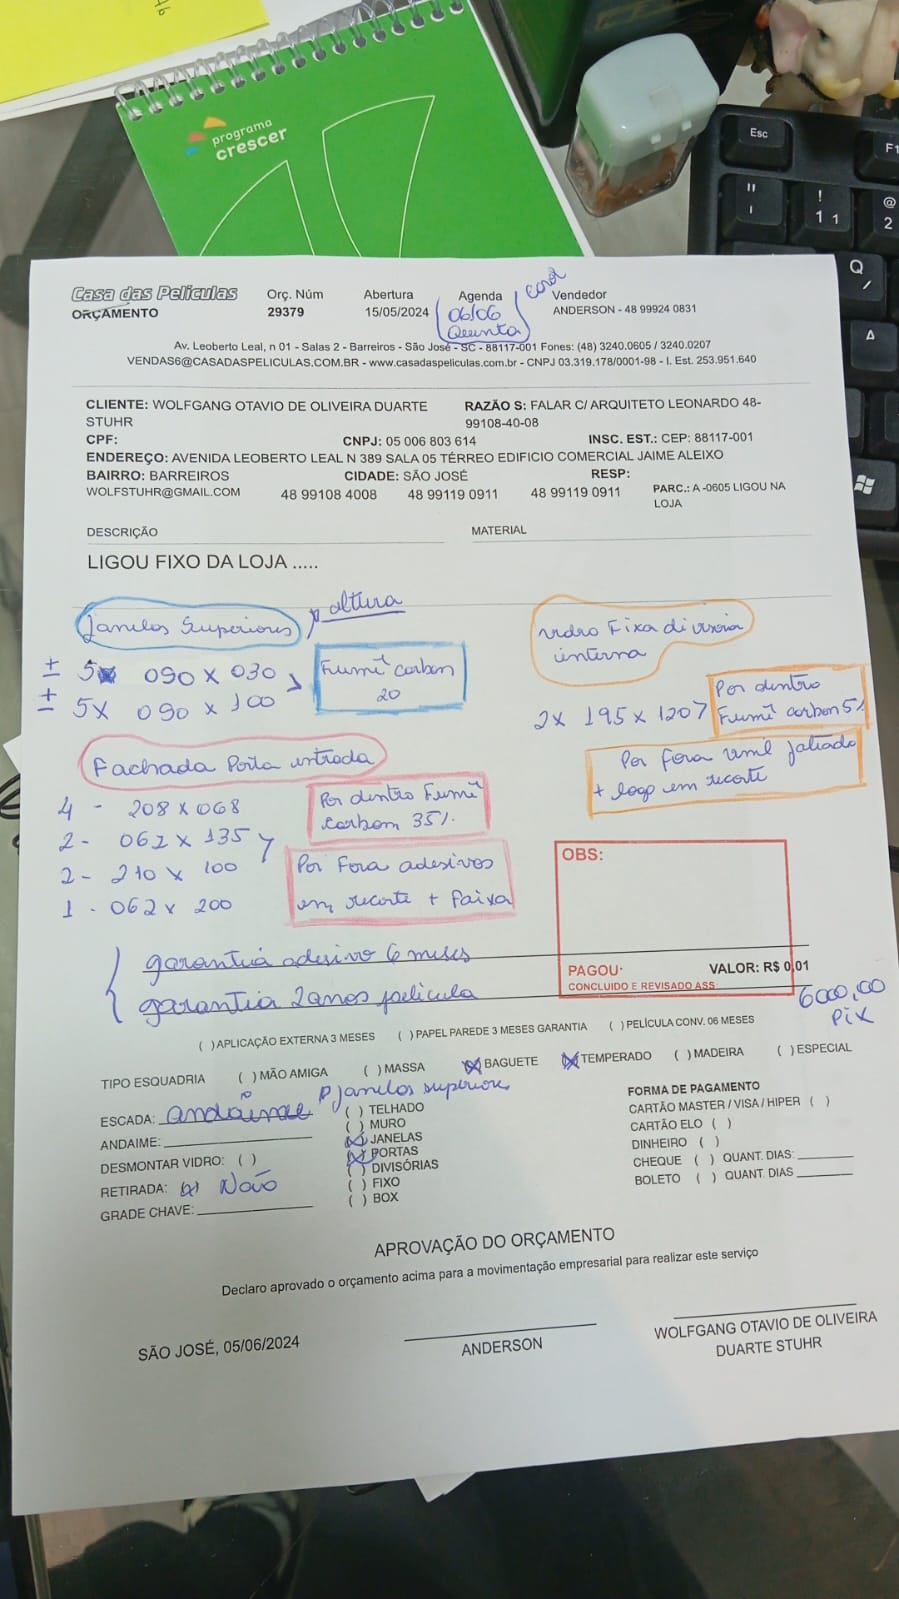 programa
crescer
Esc
F1
Casa das Peliculas
ORÇAMENTO
Orç. Núm
29379
Abertura
15/05/2024
Agenda
06/06
Quinta
Vendedor
ANDERSON - 48 99924 0831
Av. Leoberto Leal, n 01 - Salas 2 - Barreiros - São José - SC - 88117-001 Fones: (48) 3240.0605 / 3240.0207
VENDAS6@CASADASPELICULAS.COM.BR - www.casadaspeliculas.com.br - CNPJ 03.319.178/0001-98 - I. Est. 253.951.640
CLIENTE: WOLFGANG OTAVIO DE OLIVEIRA DUARTE STUHR
RAZÃO S: FALAR C/ ARQUITETO LEONARDO 48-99108-40-08
CPF: CNPJ: 05 006 803 614 INSC. EST.: CEP: 88117-001
ENDEREÇO: AVENIDA LEOBERTO LEAL N 389 SALA 05 TÉRREO EDIFICIO COMERCIAL JAIME ALEIXO
BAIRRO: BARREIROS CIDADE: SÃO JOSÉ RESP:
WOLFSTUHR@GMAIL.COM 48 99108 4008 48 99119 0911 48 99119 0911 PARC.: A -0605 LIGOU NA LOJA
DESCRIÇÃO MATERIAL
LIGOU FIXO DA LOJA .....
Janelas Superiores altura
± 5x 090 x 030
± 5x 090 x 100
Fumê carbon
20
vidro Fixa divisoria
interna
2x 195 x 1207
Por dentro
Fumê carbon 5%
Por Fora vinil jatiado
+ logo em recorte
Fachada Porta entrada
4 - 208 x 068
2 - 062 x 135
2 - 210 x 100
1 - 062 x 200
Por dentro Fumê
carbom 35%.
Por Fora adesivos
em recorte + Faixa
OBS:
PAGOU:
CONCLUIDO E REVISADO ASS
VALOR: R$ 0,01
6000,00
Pix
garantia adesivo 6 meses
garantia 2 anos pelicula
( )APLICAÇÃO EXTERNA 3 MESES ( ) PAPEL PAREDE 3 MESES GARANTIA ( )PELÍCULA CONV. 06 MESES
TIPO ESQUADRIA ( ) MÃO AMIGA ( ) MASSA (X) BAGUETE (X) TEMPERADO ( ) MADEIRA ( )ESPECIAL
ESCADA: andaime p janelas superiores
ANDAIME:
DESMONTAR VIDRO: ( )
RETIRADA: (x) Não
GRADE CHAVE:
( ) TELHADO
( ) MURO
(X) JANELAS
(X) PORTAS
( ) DIVISÓRIAS
( ) FIXO
( ) BOX
FORMA DE PAGAMENTO
CARTÃO MASTER / VISA / HIPER ( )
CARTÃO ELO ( )
DINHEIRO ( )
CHEQUE ( ) QUANT. DIAS:
BOLETO ( ) QUANT. DIAS
APROVAÇÃO DO ORÇAMENTO
Declaro aprovado o orçamento acima para a movimentação empresarial para realizar este serviço
SÃO JOSÉ, 05/06/2024
ANDERSON
WOLFGANG OTAVIO DE OLIVEIRA
DUARTE STUHR